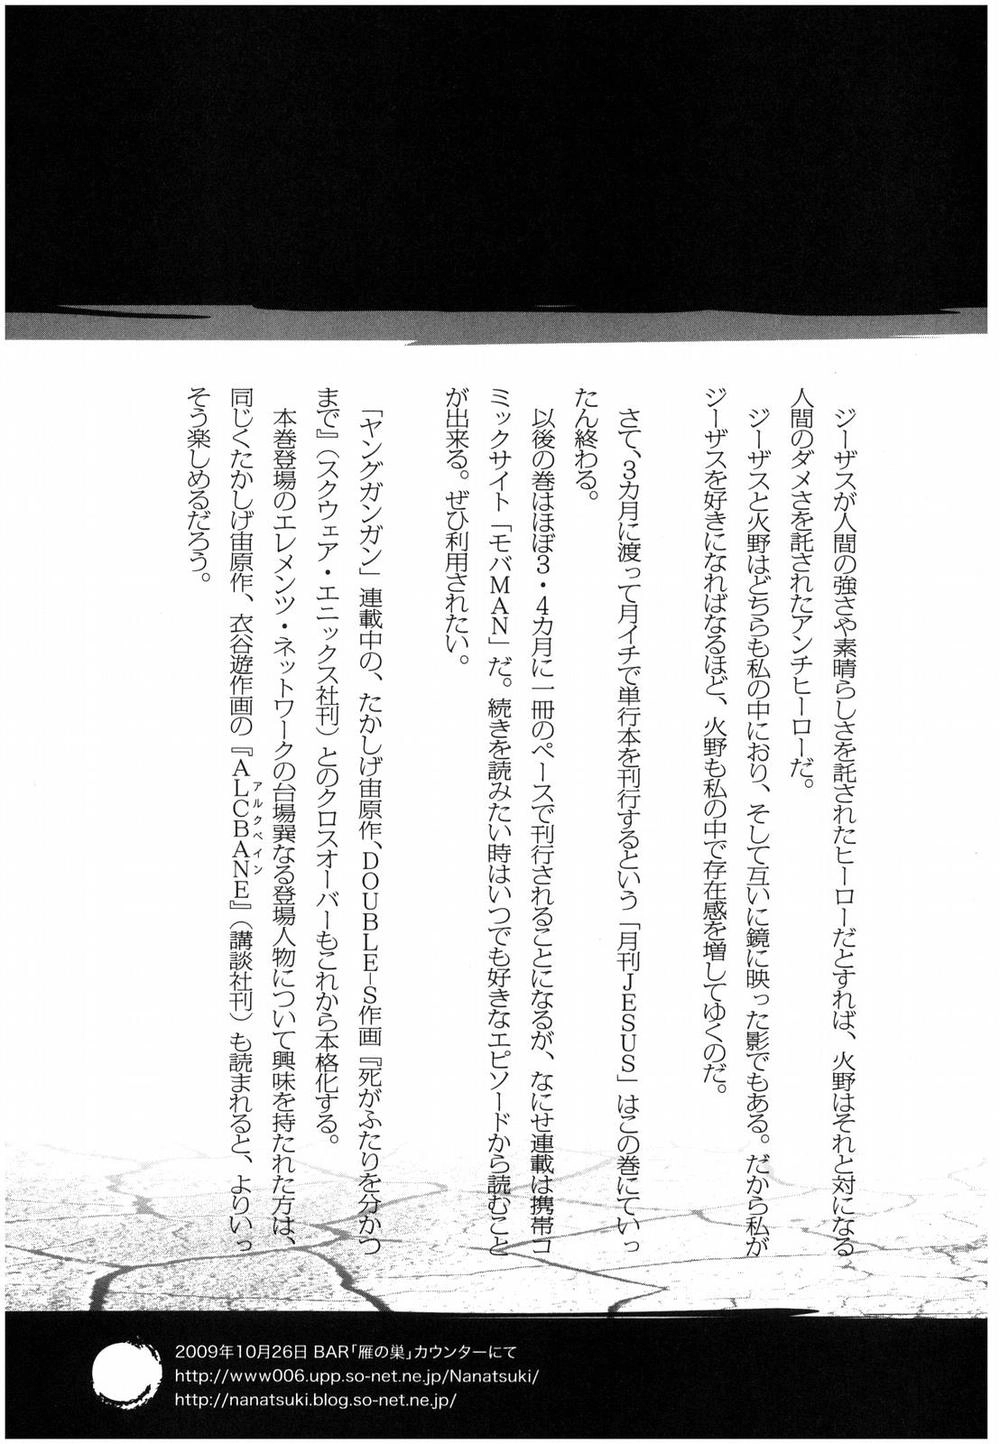 ジーザスが人間の強さや素晴らしさを託されたヒーローだとすれば、火野はそれと対になる
人間のダメさを託されたアンチヒーローだ。
ジーザスと火野はどちらも私の中におり、そして互いに鏡に映った影でもある。だから私が
ジーザスを好きになればなるほど、火野も私の中で存在感を増してゆくのだ。
さて、３カ月に渡って月イチで単行本を刊行するという「月刊ＪＥＳＵＳ」はこの巻にていっ
たん終わる。
以後の巻はほぼ３・４カ月に一冊のペースで刊行されることになるが、なにせ連載は携帯コ
ミックサイト「モバＭＡＮ」だ。続きを読みたい時はいつでも好きなエピソードから読むこと
が出来る。ぜひ利用されたい。
「ヤングガンガン」連載中の、たかしげ宙原作、ＤＯＵＢＬＥ−Ｓ作画『死がふたりを分かつ
まで』（スクウェア・エニックス社刊）とのクロスオーバーもこれから本格化する。
本巻登場のエレメンツ・ネットワークの台場巽なる登場人物について興味を持たれた方は、
同じくたかしげ宙原作、衣谷遊作画の『ＡＬＣＢＡＮＥ』（講談社刊）も読まれると、よりいっ
アルクベイン
そう楽しめるだろう。
2009年10月26日 BAR「雁の巣」カウンターにて
http://www006.upp.so-net.ne.jp/Nanatsuki/
http://nanatsuki.blog.so-net.ne.jp/